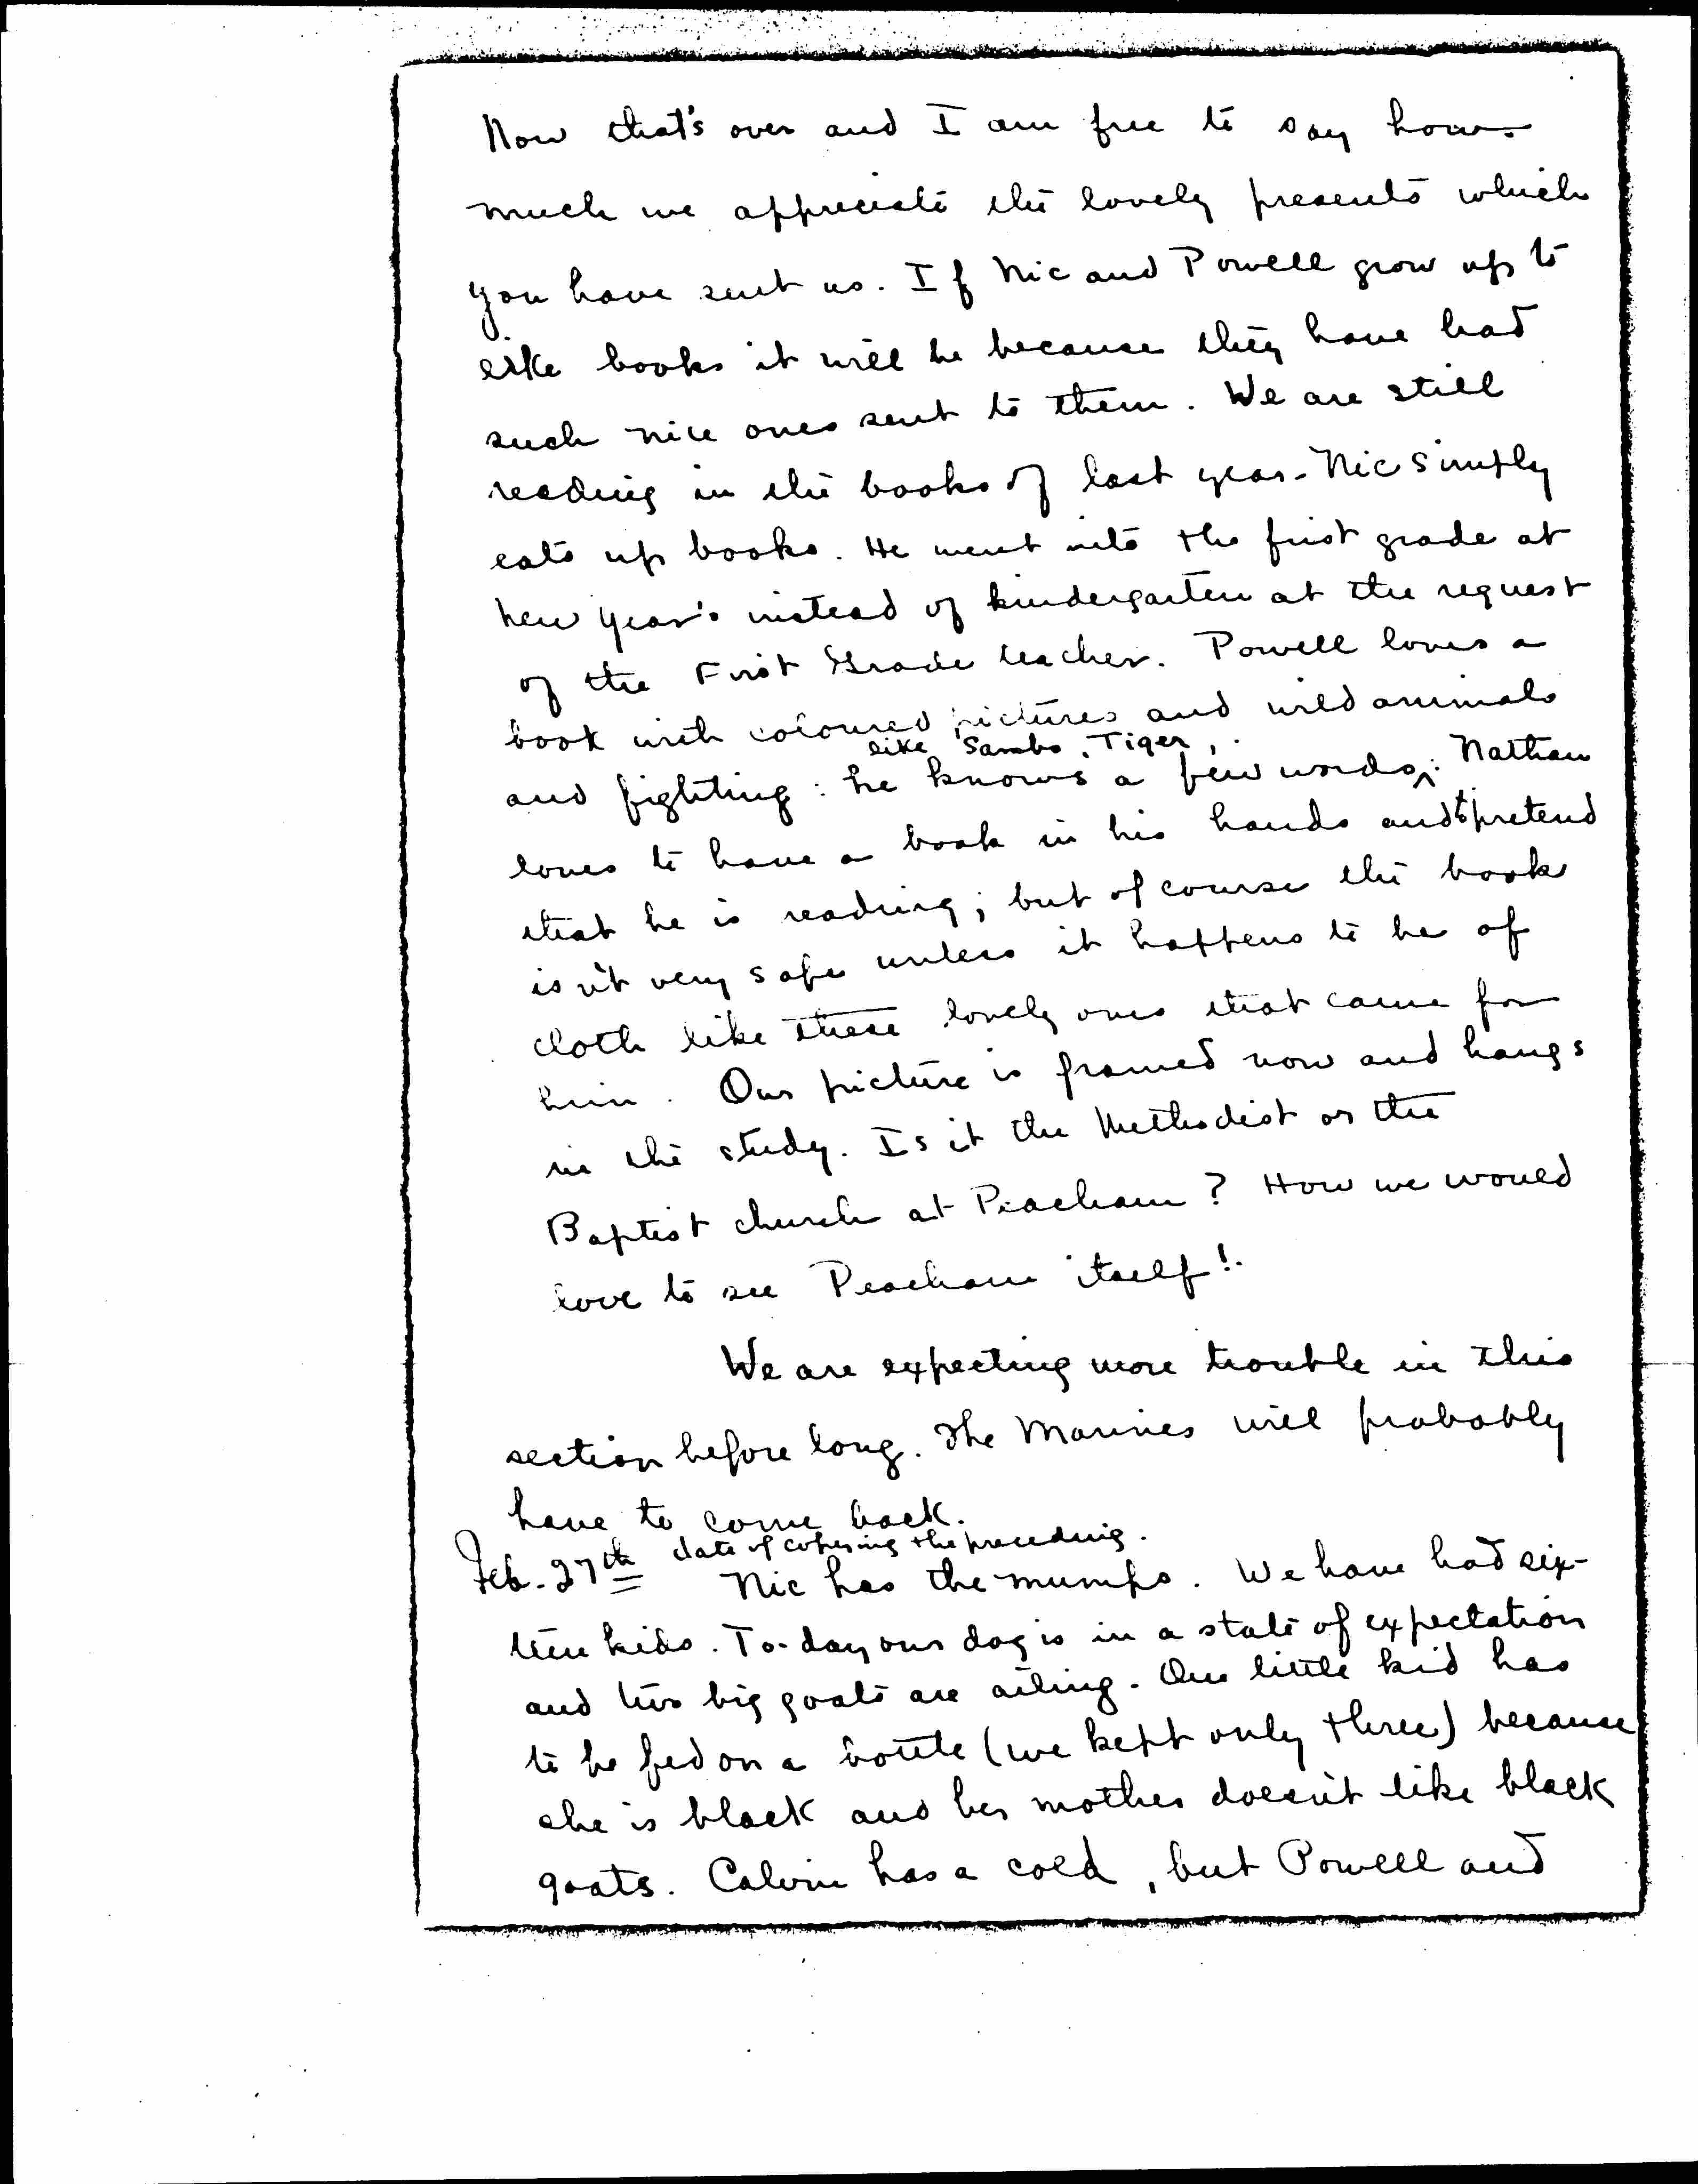 Now that's over and I am free to say how
much we appreciate the lovely presents which
you have sent us. If Nic and Powell grow up to
like books it will be because they have had
such nice ones sent to them. We are still
reading in the books of last year. Nic simply
eats up books. He went into the first grade at
New Year's instead of kindergarten at the request
of the First Grade teacher. Powell loves a
book with coloured pictures and wild animals
like Sambo, Tiger,
and fighting: he knows a few words^: Nathan
loves to have a book in his hands and to pretend
that he is reading; but of course the book
isn't very safe unless it happens to be of
cloth like these lovely ones that came for
him. Our picture is framed now and hangs
in the study. Is it the Methodist or the
Baptist church at Peacham? How we would
love to see Peacham itself!
We are expecting more trouble in this
section before long. The Marines will probably
have to come back.
Feb. 27th date of copying the preceding.
Nic has the mumps. We have had six-
teen kids. To-day our dog is in a state of expectation
and two big goats are ailing. One little kid has
to be fed on a bottle (we kept only three) because
she is black and her mother doesn't like black
goats. Calvin has a cold, but Powell and